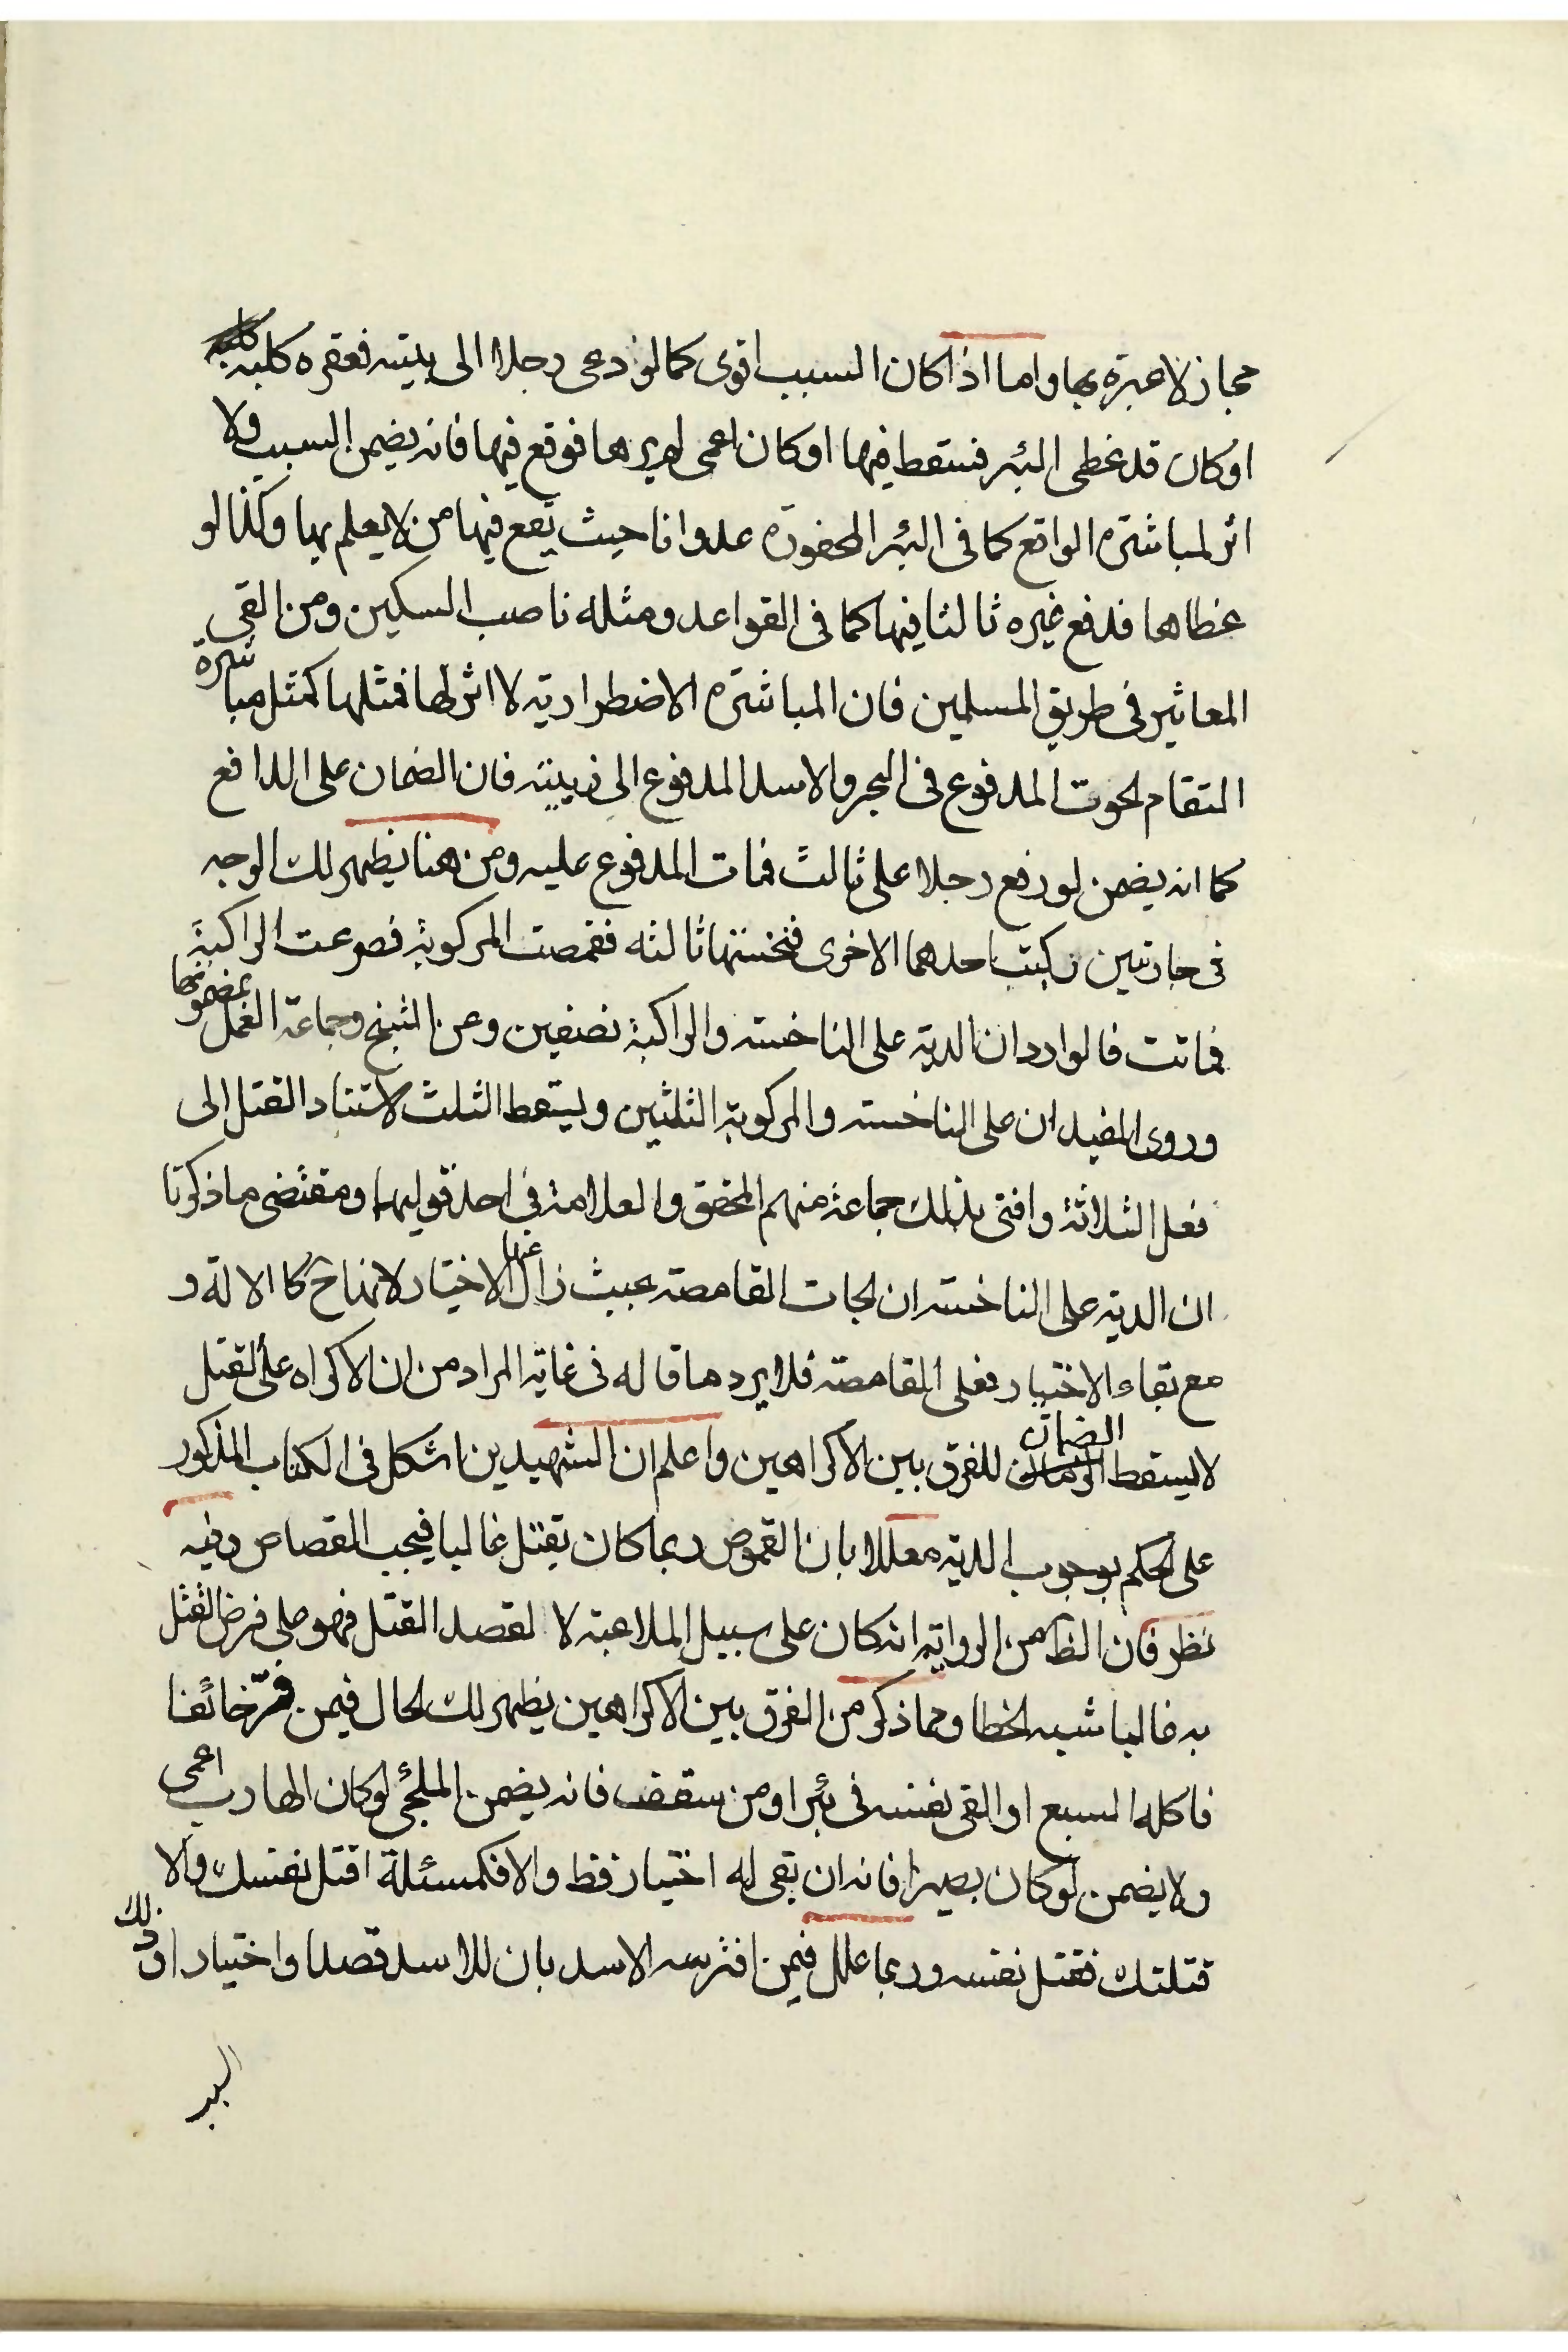 مجاز لا عبرة بها واما اذا كان السبب اقوى كما لو دعى رجلا الى بيته فعقره كلبه
او كان قد غطى البئر فسقط فيها او كان اعمى لم يرها فوقع فيها فانه يضمن السبب ولا
اثر لمباشرة الواقع كما فى البئر المحفورة عدوانا حيث يقع فيها من لا يعلم بها وكذا لو
غطاها فدفع غيره ثالثا فيها كما فى القواعد ومثله ناصب السكين ومن القى
المعاثير فى طريق المسلمين فان المباشرة الاضطرارية لا اثر لها فمثلها كمثل مباشرة
التقام الحوت المدفوع فى البحر والاسد المدفوع الى زبيته فان الضمان على الدافع
كما انه يضمن لو دفع رجلا على ثالث فمات المدفوع عليه ومن هنا يظهر لك الوجه
فى جارتين ركبت احدهما الاخرى فنخستها ثالثه فقمصت المركوبة فصرعت الراكبة
فماتت فالوارد ان الدية على الناخسة والراكبة نصفين وعن الشيخ وجماعة العمل بمضمونها
وروى المفيد ان على الناخسة والمركوبة الثلثين ويسقط الثلث لاستناد القتل الى
فعل الثلاثة وافتى بذلك جماعة منهم المحقق والعلامة فى احد قوليهما ومقتضى ما ذكرنا
ان الدية على الناخسة ان الجات القامصة بحيث زال عنها الاختيار لانها ح كالالة و
مع بقاء الاختيار فعلى القامصة فلا يرد ما قاله فى غاية المراد من ان الاكراه على القتل
لا يسقط الضمان للفرق بين الاكراهين واعلم ان الشهيدين اشكل فى الكتاب المذكور
على الحكم بوجوب الدية معللا بان القموص ربما كان يقتل غالبا فيجب القصاص وفيه
نظر فان الظ من الرواية انه كان على سبيل الملاعبة لا لقصد القتل فهو على فرض القتل
به غالبا شبيه الخطا ومما ذكر من الفرق بين الاكراهين يظهر لك الحال فيمن فر خائفا
فاكله السبع او القى نفسه فى بئر او من سقف فانه يضمن الملجئ لو كان الهارب اعمى
ولا يضمن لو كان بصيرا فانه ان بقى له اختيار فظ والا فكمسئلة اقتل نفسك والا
قتلتك فقتل نفسه وربما علل فيمن افترسه الاسد بان للاسد قصدا واختيارا وذلك